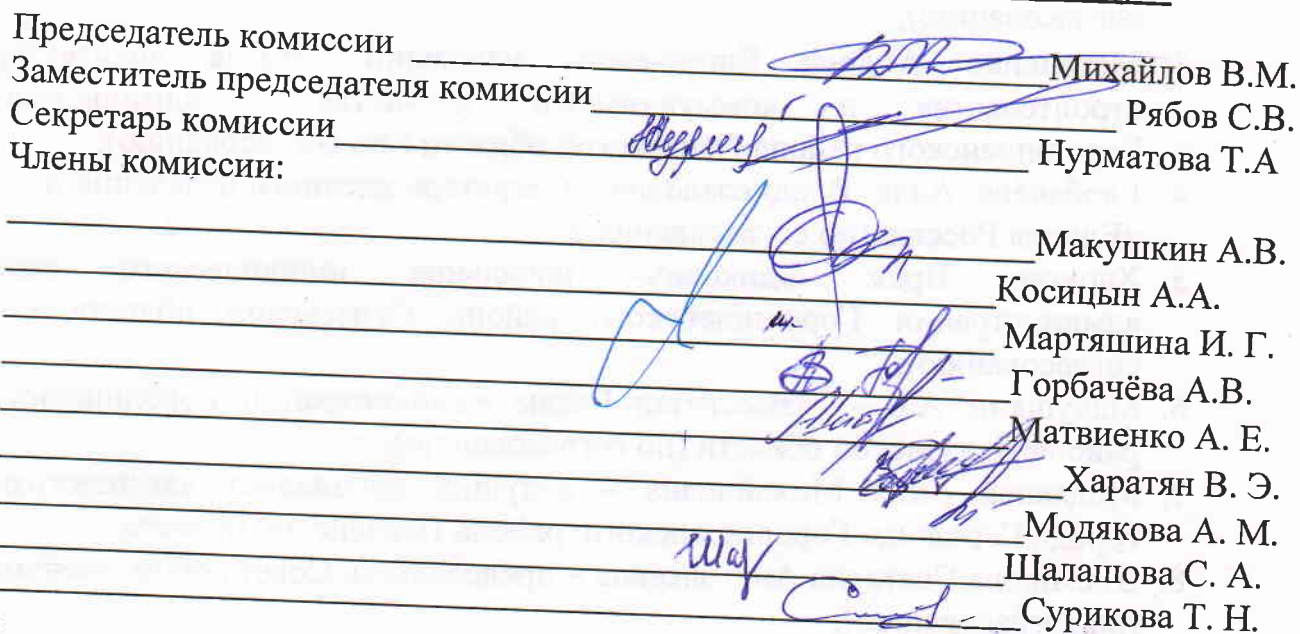 Председатель комиссии Михайлов В.М.
Заместитель председателя комиссии Рябов С.В.
Секретарь комиссии Нурматова Т.А
Члены комиссии:
Макушкин А.В.
Косицын А.А.
Мартяшина И. Г.
Горбачёва А.В.
Матвиенко А. Е.
Харатян В. Э.
Модякова А. М.
Шалашова С. А.
Сурикова Т. Н.